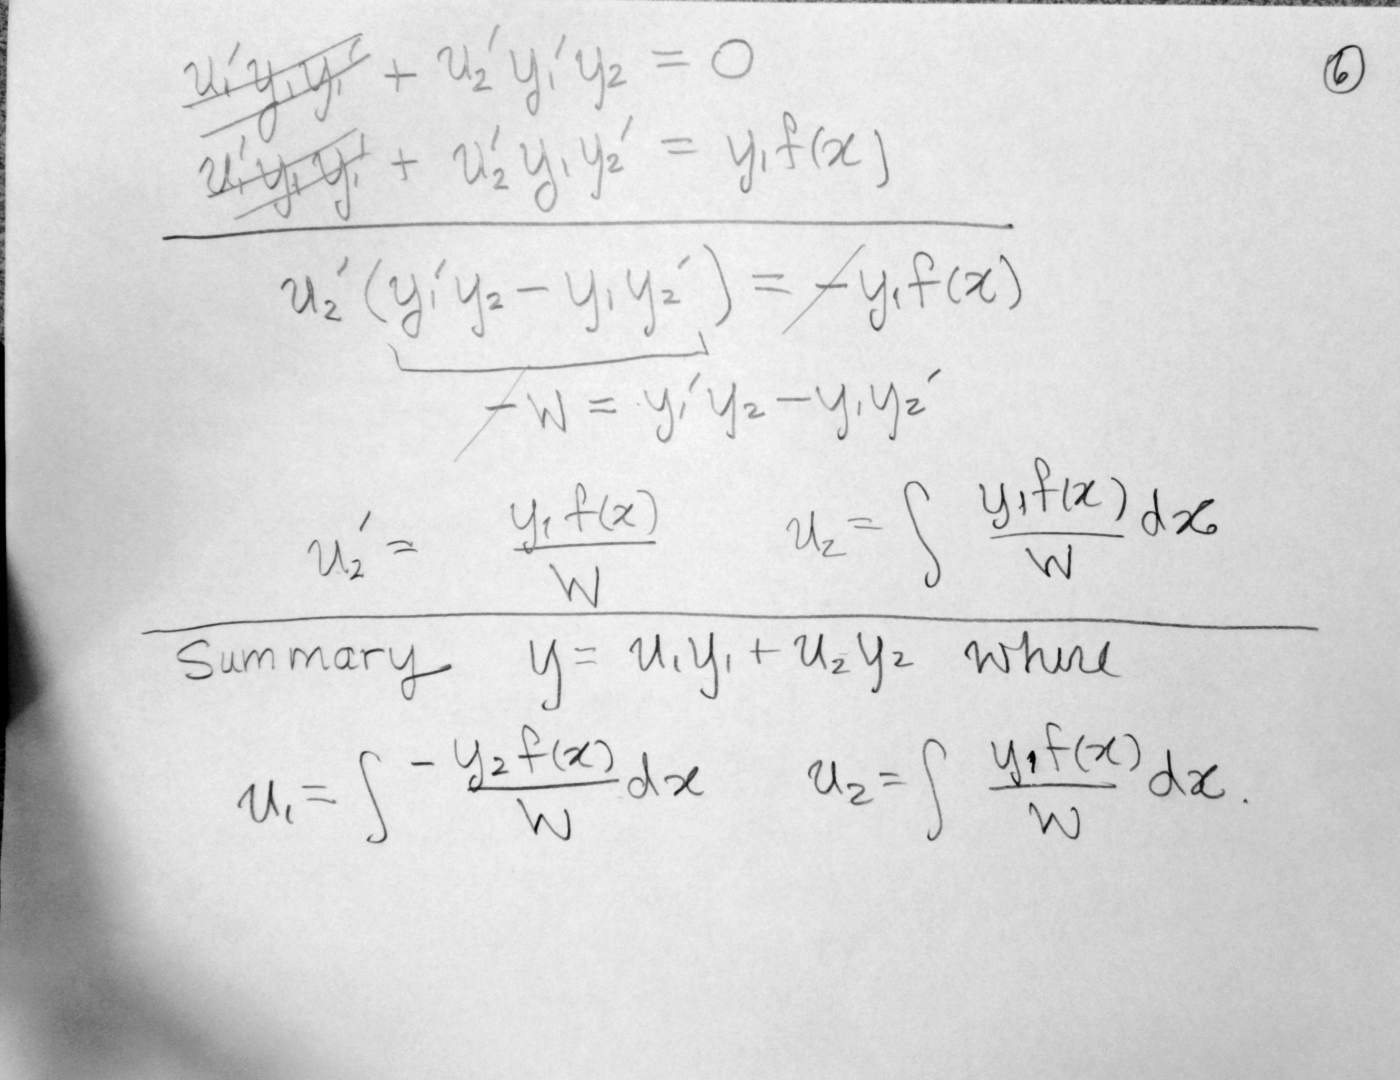 u₁'y₁y₁' + u₂'y₁'y₂ = 0
⑥
u₁'y₁y₁' + u₂'y₁y₂' = y₁f(x)
u₂'(y₁'y₂ - y₁y₂') = -y₁f(x)
-W = y₁'y₂ - y₁y₂'
u₂' = y₁f(x)/W u₂ = ∫ y₁f(x)/W dx
Summary y = u₁y₁ + u₂y₂ where
u₁ = ∫ -y₂f(x)/W dx u₂ = ∫ y₁f(x)/W dx.